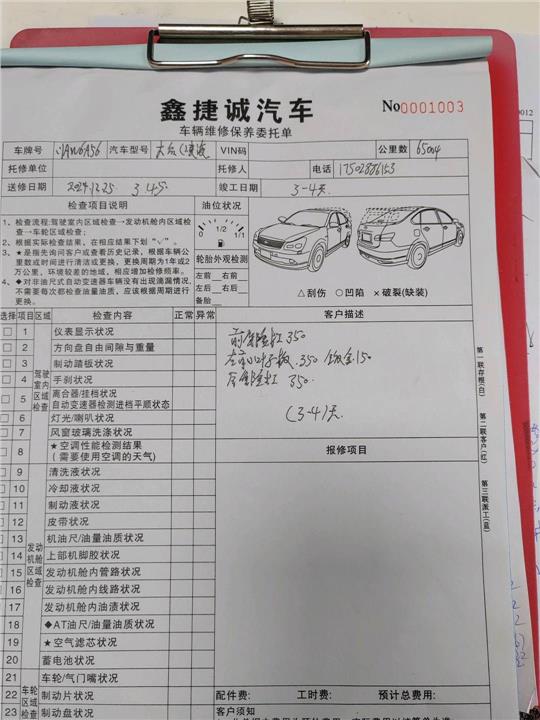 鑫捷诚汽车
No0001003
车辆维修保养委托单
车牌号 汽车型号 VIN码 公里数 65004
托修单位 托修人 电话
送修日期 2024.12.25 竣工日期 3-4天
检查项目说明
油位状况
1、检查流程:驾驶室内区域检查→发动机舱内区域检
查→车轮区域检查;
2、根据实际检查结果,在相应结果下划“√”。
3、★是指先询问客户或查看历史记录,根据车辆公
里数或时间进行清洁或更换,更换周期为1年或2
万公里,环境较差的地域,相应增加检修频率。
4、◆对非油尺式自动变速器车辆没有出现滴漏情况,
不需要每次都检查油量油质,应该根据周期进行
更换。
0 1/2 1/1
轮胎外观检测
左前 右前
左后 右后
备胎
△刮伤 ○凹陷 ×破裂(缺装)
选择 项目 区域 检查内容 正常 异常
客户描述
驾驶室内区域检查
1 仪表显示状况
2 方向盘自由间隙与重量
3 制动踏板状况
4 手刹状况
5 离合器/挂档状况
自动变速器检测进档平顺状态
6 灯光/喇叭状况
7 风窗玻璃洗涤状况
8 ★空调性能检测结果
(需要使用空调的天气)
350
350 钣金150
350.
(3-4)天
报修项目
发动机舱区域检查
9 清洗液状况
10 冷却液状况
11 制动液状况
12 皮带状况
13 机油尺/油量油质状况
14 上部机脚胶状况
15 发动机舱内管路状况
16 发动机舱内线路状况
17 发动机舱内油渍状况
18 ◆AT油尺/油量油质状况
19 ★空气滤芯状况
20 蓄电池状况
车轮区域
21 车轮/气门嘴状况
22 制动片状况
23 制动盘状况
配件费: 工时费: 预计总费用:
客户须知
第一联存根(白)
第二联客户(红)
第三联派工(蓝)
0012